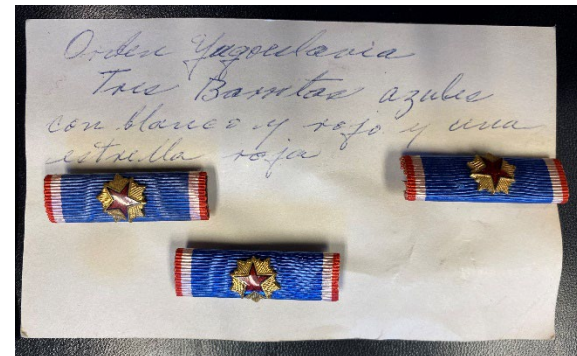 Orden Yugoeslavia
Tres Barritas azules
con blanco y rojo y una
estrella roja